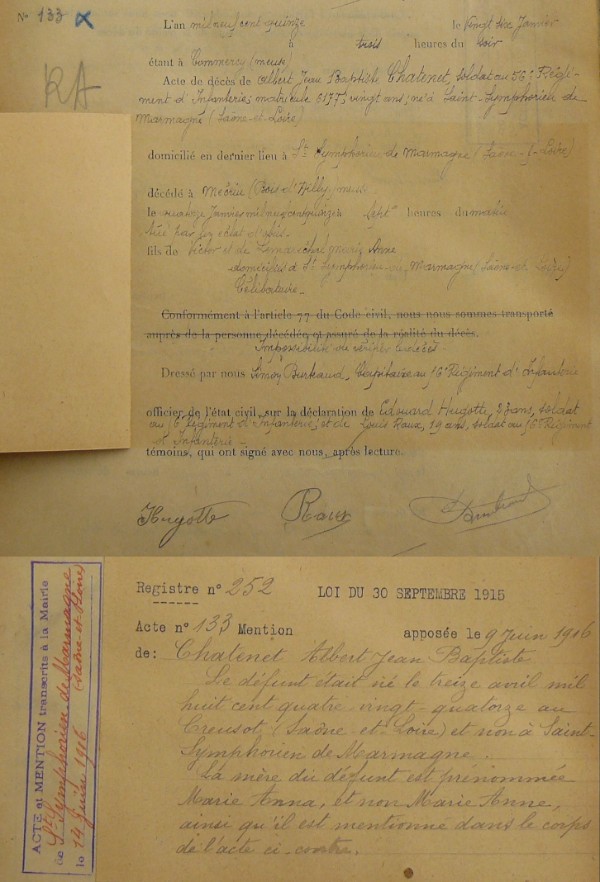 N° 133
L'an mil neuf cent quinze le vingt six Janvier
à trois heures du soir
étant à Commercy (meuse)
Acte de décès de Albert Jean Baptiste Chatenet, soldat au 56e Régi-
RA
ment d'Infanterie, matricule 6177, vingt ans, né à Saint-Symphorien de
Marmagne (Saône-et-Loire)
domicilié en dernier lieu à St Symphorien de Marmagne (Saône-&-Loire)
décédé à Mécrin (Bois d'Ailly) meuse
le quatorze Janvier mil neuf cent quinze à sept heures du matin
tué par éclat d'obus
fils de Victor et de marie Anne
domiciliés à St Symphorien de Marmagne (Saône-et-Loire)
Célibataire
Conformément à l'article 77 du Code civil, nous nous sommes transporté
auprès de la personne décédée et assuré de la réalité du décès.
Impossibilité de vérifier le décès
Dressé par nous Simon Bertrand, Capitaine au 16e Régiment d'Infanterie
officier de l'état civil, sur la déclaration de Edouard Hugotte, ans, soldat
au Régiment d'Infanterie, et de Louis Raux, 19 ans, soldat au Régiment
d'Infanterie
témoins, qui ont signé avec nous, après lecture.
Hugotte Raux
ACTE et MENTION transcrits à la Mairie
de St Symphorien de Marmagne
(Saône-et-Loire)
le 14 Juin 1916
Registre n° 252 LOI DU 30 SEPTEMBRE 1915
Acte n° 133 Mention apposée le 9 Juin 1916
de: Chatenet Albert Jean Baptiste
Le défunt était né le treize avril mil
huit cent quatre vingt-quatorze au
Creusot (Saône-et-Loire) et non à Saint-
Symphorien de Marmagne.
La mère du défunt est prénommée
Marie Anna, et non Marie Anne,
ainsi qu'il est mentionné dans le corps
de l'acte ci-contre.